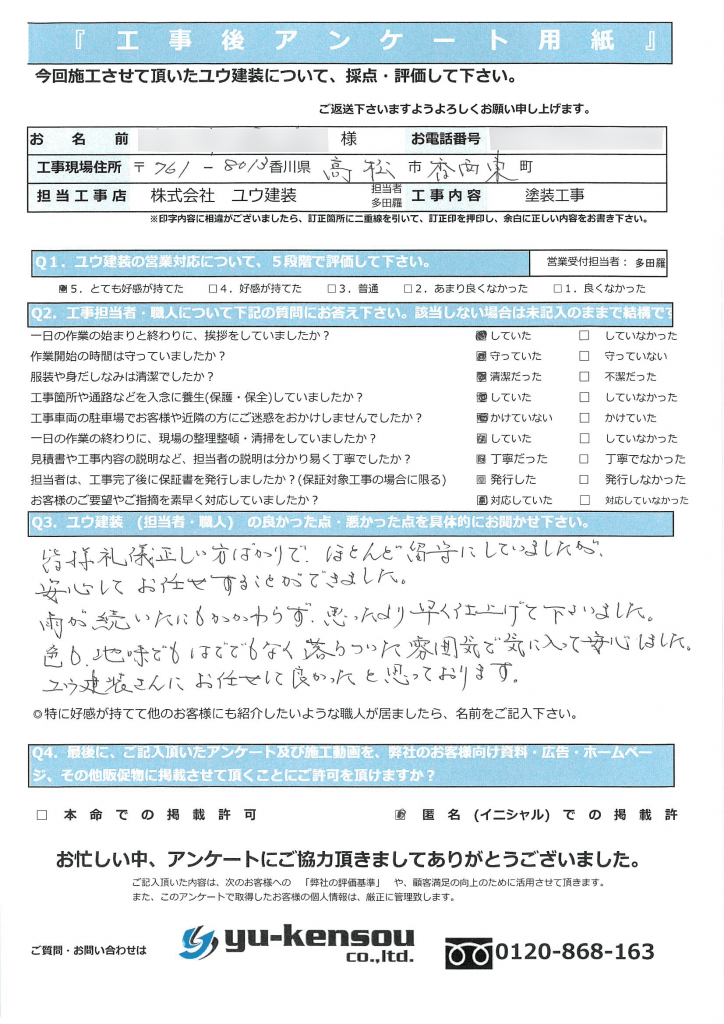 『工事後アンケート用紙』
今回施工させて頂いたユウ建装について、採点・評価して下さい。
ご返送下さいますようよろしくお願い申し上げます。
お名前 様 お電話番号
工事現場住所 〒761-8013香川県 高松 市 香西東 町
担当工事店 株式会社 ユウ建装 担当者 多田羅 工事内容 塗装工事
※印字内容に相違がございましたら、訂正箇所に二重線を引いて、訂正印を押印し、余白に正しい内容をお書き下さい。
Q1．ユウ建装の営業対応について、５段階で評価して下さい。 営業受付担当者：多田羅
５．とても好感が持てた □４．好感が持てた □３．普通 □２．あまり良くなかった □１．良くなかった
Q2．工事担当者・職人について下記の質問にお答え下さい。該当しない場合は未記入のままで結構です
一日の作業の始まりと終わりに、挨拶をしていましたか？ していた □ していなかった
作業開始の時間は守っていましたか？ 守っていた □ 守っていない
服装や身だしなみは清潔でしたか？ 清潔だった □ 不潔だった
工事箇所や通路などを入念に養生(保護・保全)していましたか？ していた □ していなかった
工事車両の駐車場でお客様や近隣の方にご迷惑をおかけしませんでしたか？ かけていない □ かけていた
一日の作業の終わりに、現場の整理整頓・清掃をしていましたか？ していた □ していなかった
見積書や工事内容の説明など、担当者の説明は分かり易く丁寧でしたか？ 丁寧だった □ 丁寧でなかった
担当者は、工事完了後に保証書を発行しましたか？(保証対象工事の場合に限る) 発行した □ 発行しなかった
お客様のご要望やご指摘を素早く対応していましたか？ 対応していた □ 対応していなかった
Q3．ユウ建装　(担当者・職人)　の良かった点・悪かった点を具体的にお聞かせ下さい。
皆様礼儀正しい方ばかりで、ほとんど留守にしていましたが、
安心してお任せすることができました。
雨が続いたにもかかわらず、思ったより早く仕上げて下さいました。
色も、地味でもはででもなく落ちついた雰囲気で気に入って安心しました。
ユウ建装さんにお任せして良かったと思っております。
◎特に好感が持てて他のお客様にも紹介したいような職人が居ましたら、名前をご記入下さい。
Q4．最後に、ご記入頂いたアンケート及び施工動画を、弊社のお客様向け資料・広告・ホームペー
ジ、その他販促物に掲載させて頂くことにご許可を頂けますか？
□ 本命での掲載許可 匿名(イニシャル)での掲載許
お忙しい中、アンケートにご協力頂きましてありがとうございました。
ご記入頂いた内容は、次のお客様への　「弊社の評価基準」　や、顧客満足の向上のために活用させて頂きます。
また、このアンケートで取得したお客様の個人情報は、厳正に管理致します。
ご質問・お問い合わせは yu-kensou co.,ltd. 0120-868-163